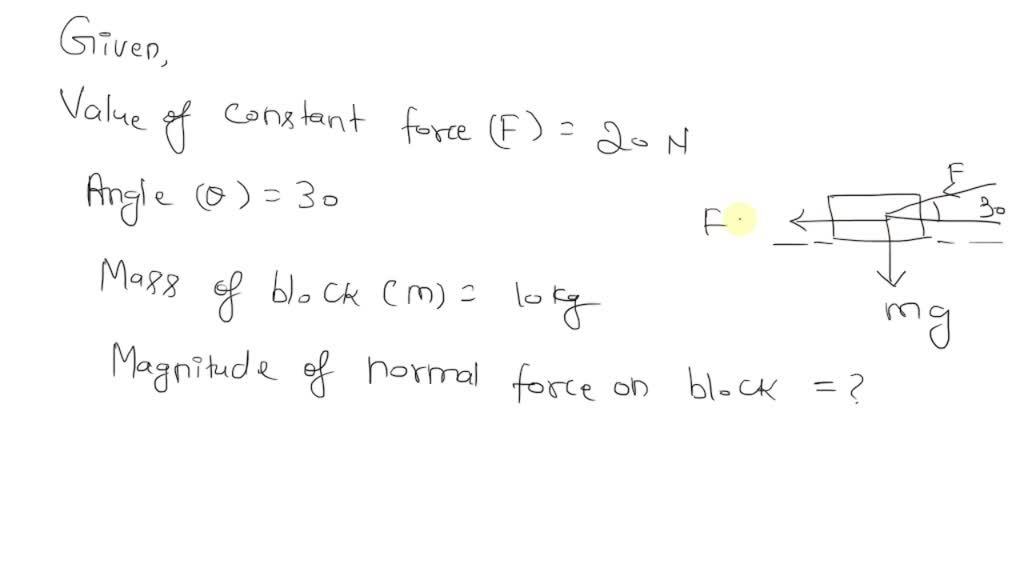 Given,
Value of constant force (F) = 20 N
Angle (θ) = 30
F
30
F
Mass of block (m) = 10 kg
mg
Magnitude of normal force on block = ?